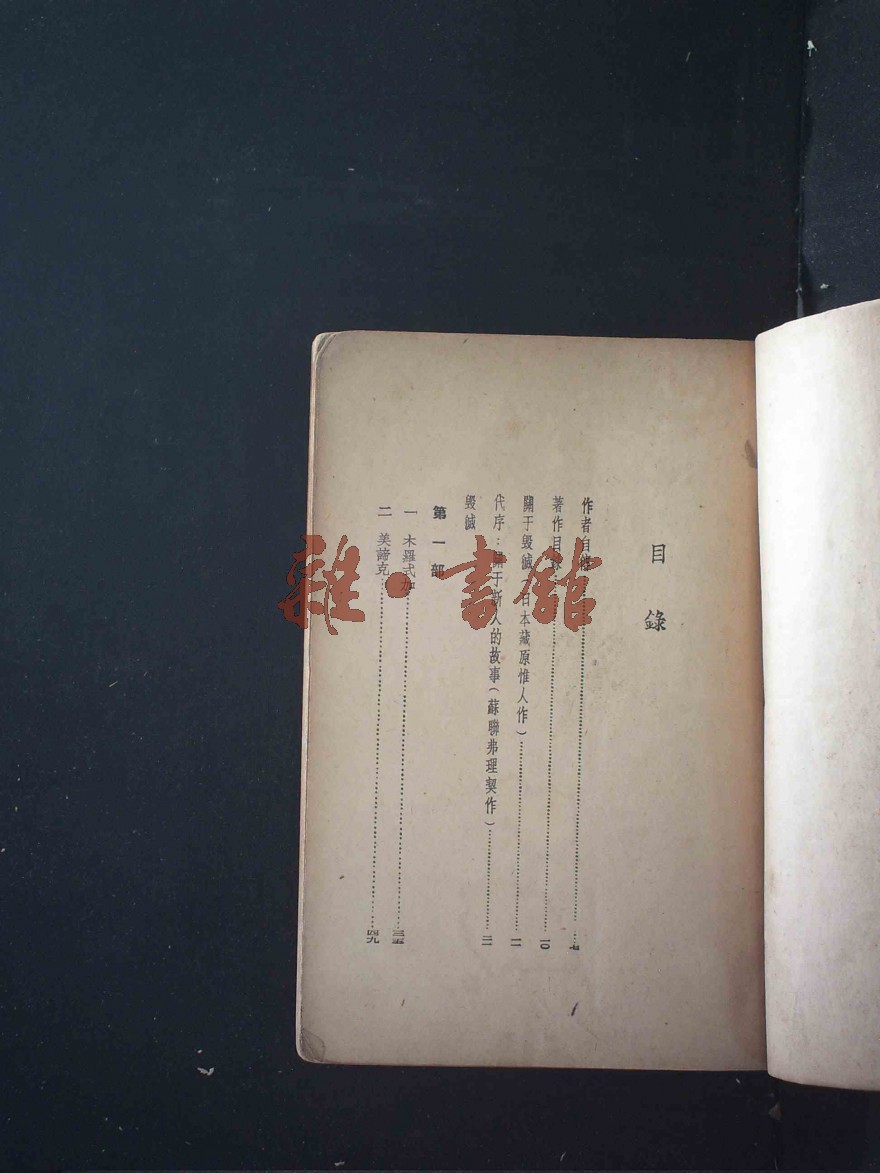 目錄
作者自傳……七
著作目錄……一〇
關于毀滅（日本藏原惟人作）……一一
代序：關于新人的故事（蘇聯弗理契作）……
毀滅
第一部
一 木羅式加……三五
二 美諦克……四九
雜·書館